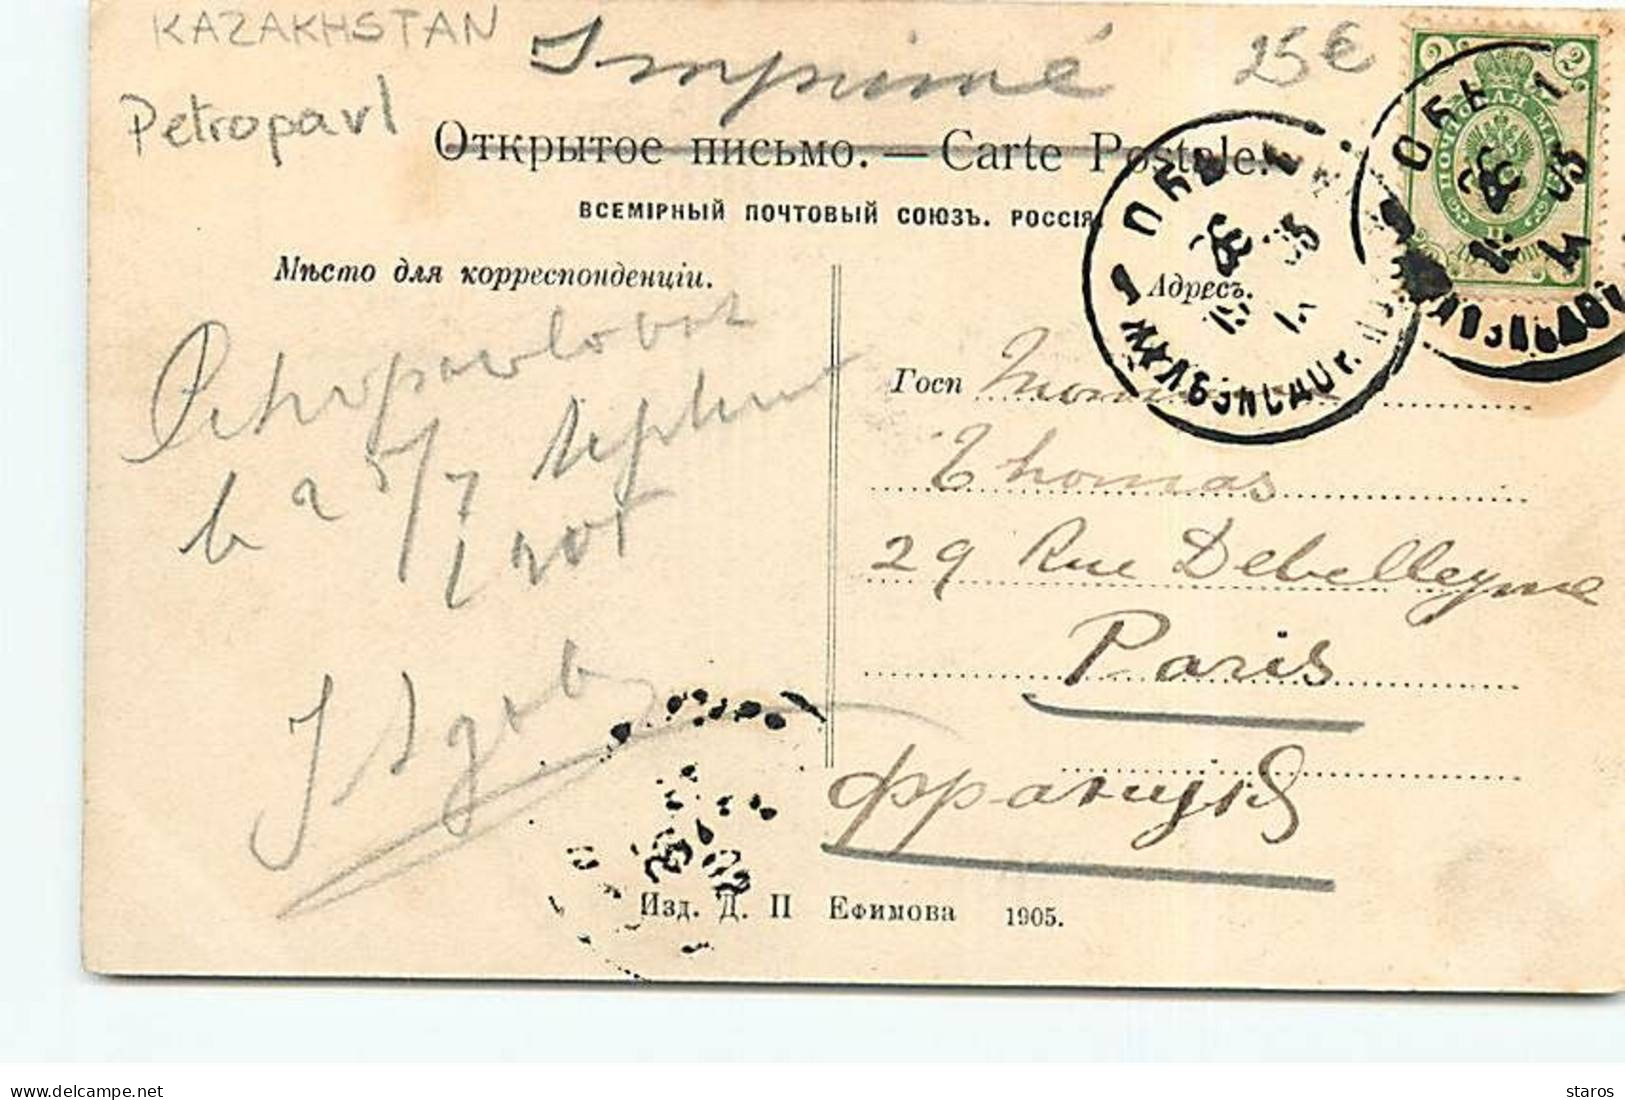 KAZAKHSTAN
Petropavl
Imprimé
25€
Открытое письмо. — Carte Postale.
ВСЕМІРНЫЙ ПОЧТОВЫЙ СОЮЗЪ. РОССІЯ.
Мѣсто для корреспонденціи.
Адресъ.
Petropavlovsk
le 25/7 Septembre
1905
Госп
Thomas
29 Rue Debelleyme
Paris
Франція
Изд. Д. П Ефимова 1905.
delcampe.net
staros